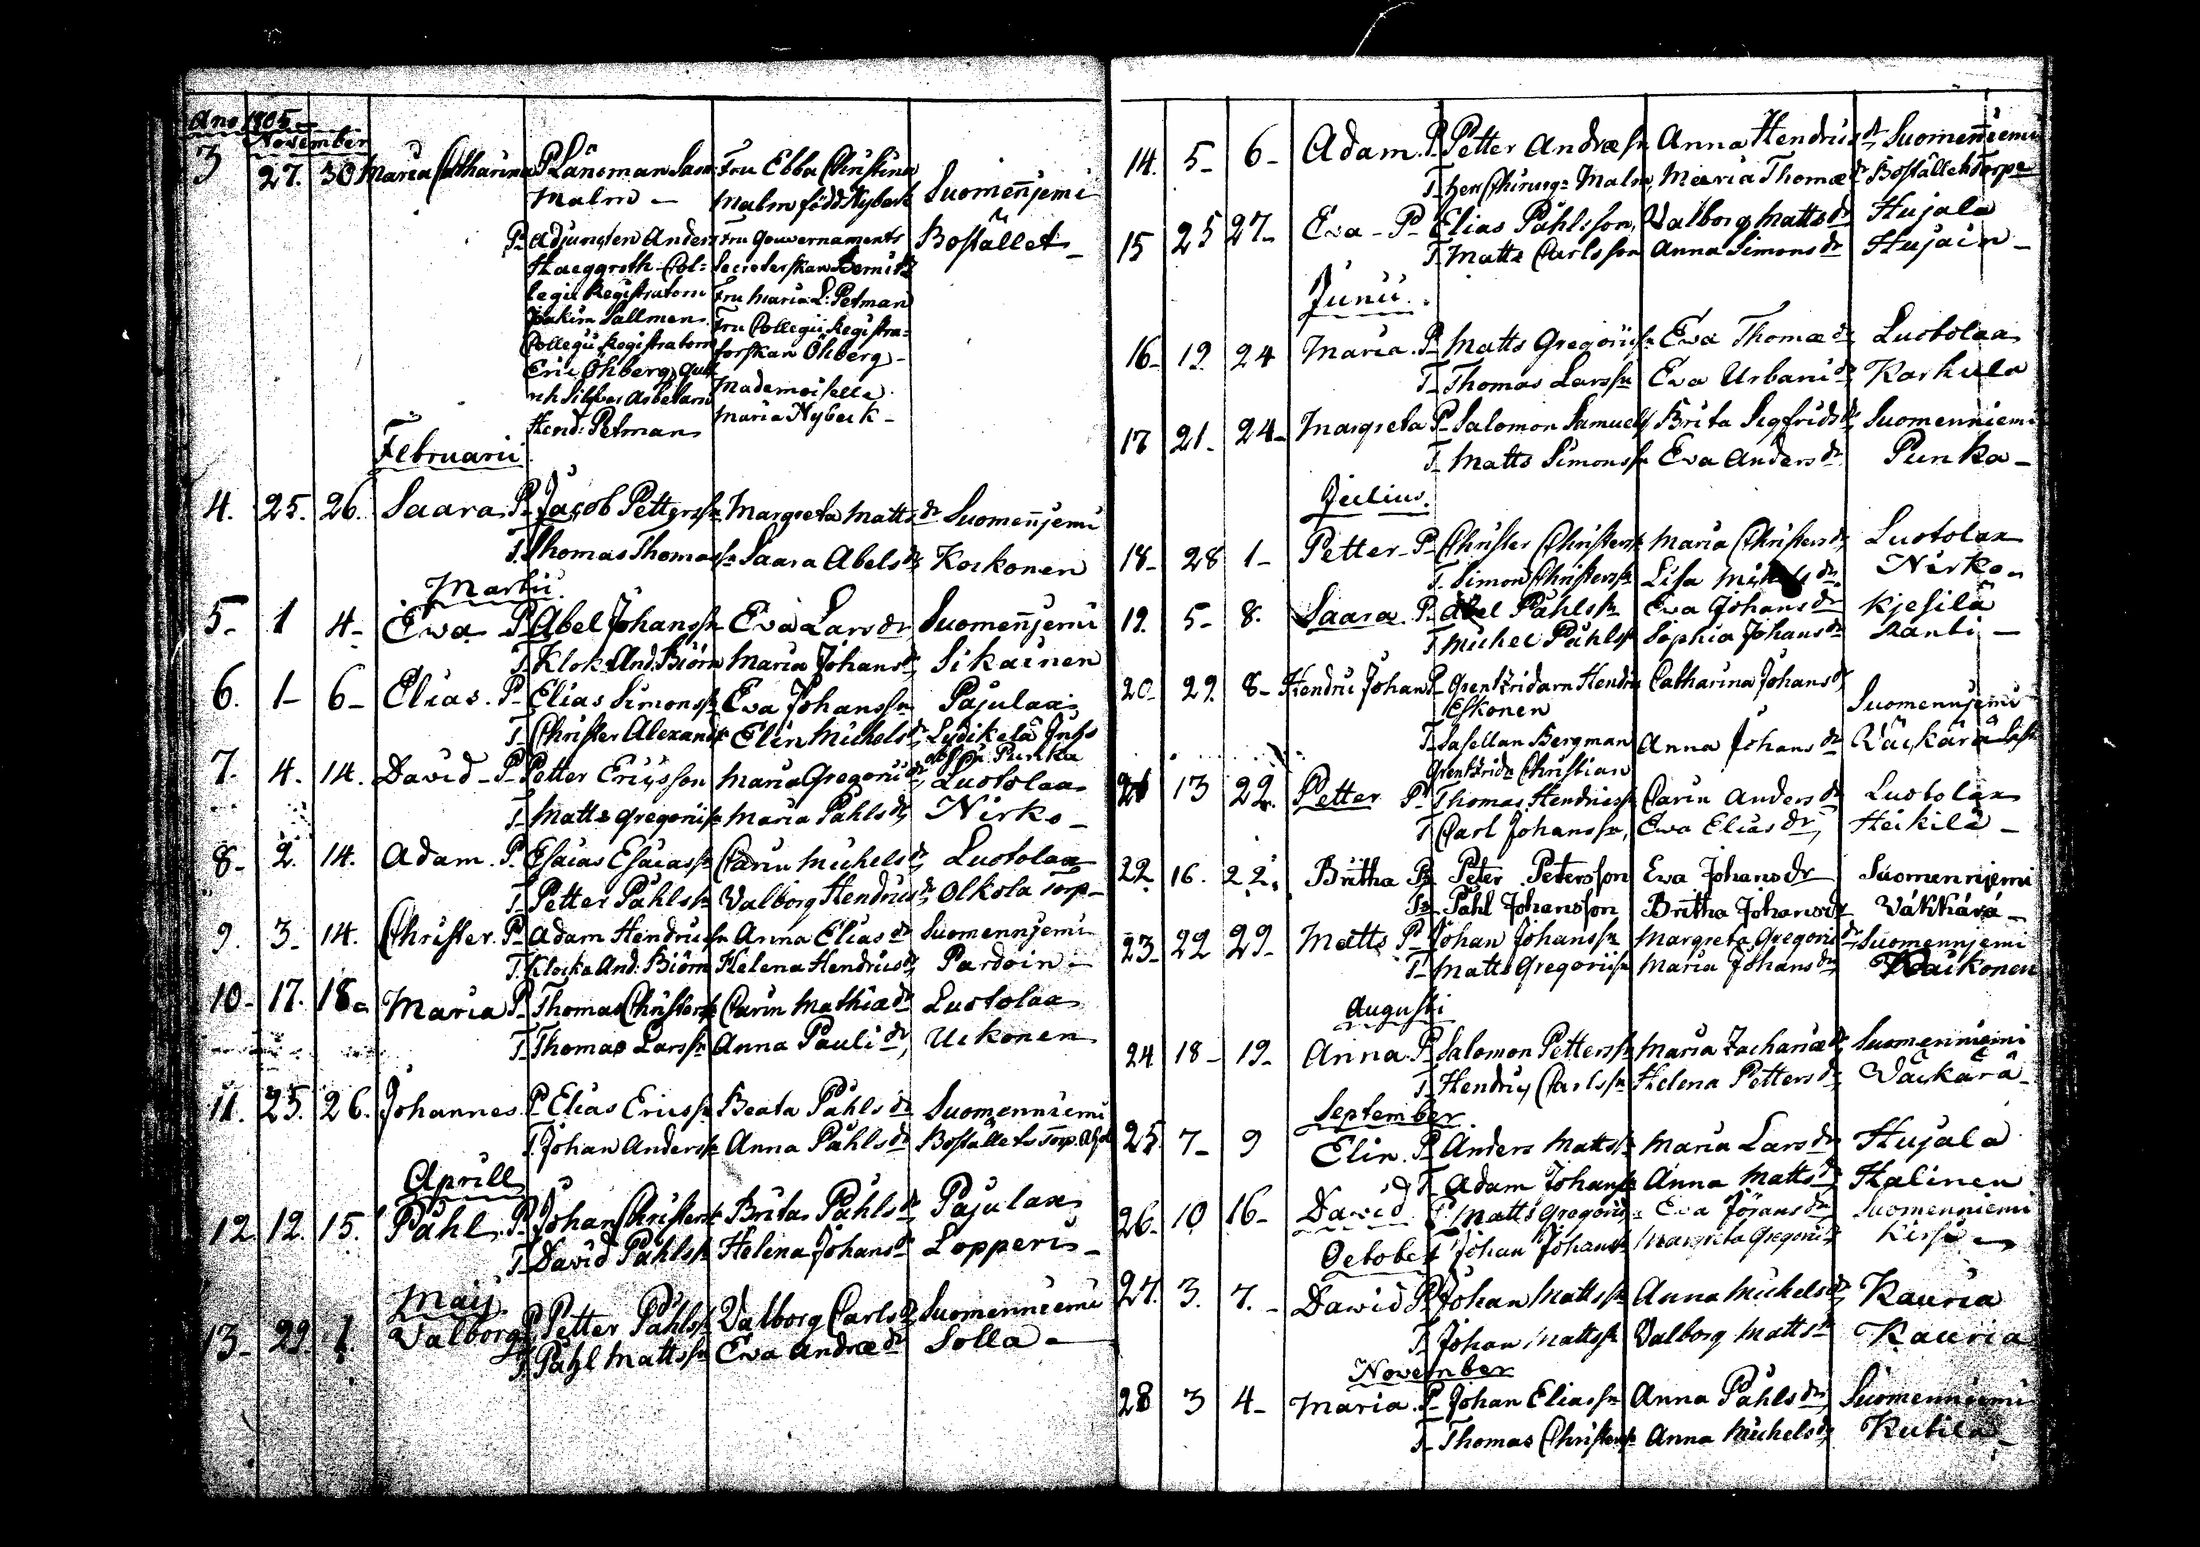 Ano 1805
November
3 27. 30 Maria Catharina P Länsman Malm Fru Ebba Christina Malm född Nyberk Suomenjemi Bostället
P Adjuncten Anders Haeggroth Col-
legii Registratorn
Joakim Sallmen
Collegii Registratorn
Eric Öhberg
Hend: Petman
Fru Gouvernaments
Secreterskan
Fru Maria L: Petman
Fru Collegii Registra-
torskan Öhberg
Mademoiselle
Maria Nyberk
Februarii
4. 25. 26. Saara P Jacob Petterss Margreta Matts dr Suomenjemi
T. Thomas Thomass Saara Abels dr Korkonen
Martii
5 1 4 Eva P Abel Johanss Eva Lars dr Suomenjemi
T Klok. And. Biörn Maria Johans dr Sikainen
6. 1 6 Elias P Elias Simonss Eva Johanss Pajulax
T Christer Alexand Elin Michels dr
7. 4. 14. David P Petter Ericsson Maria Gregorii dr Luotolax
T Matts Gregorii Maria Påhls dr Nirko
8 2. 14. Adam P. Esaias Esaiass Carin Michels dr Luotolax
T Petter Påhls Valborg Hendrics dr Olkola Torp
9. 3 14. Christer P Adam Hendrics Anna Elias dr Suomennjemi
T. Klocka And. Biörn Helena Hendrics dr Pardoin
10 17. 18 Maria P Thomas Christers Carin Mathiæ dr Luotolax
T. Thomas Larss Anna Pauli dr Uckonen
11. 25. 26. Johannes P Elias Ericss Beata Påhls dr Suomenniemi
T. Johan Anderss Anna Påhls dr Boställets Torp
Aprill
12 12. 15. Påhl P Johan Christers Brita Påhls dr Pajulax
T David Påhls Helena Johans dr Lopperi
Maij
13 29 1 Valborg P Petter Påhls Valborg Carls dr Suomenniemi
T Påhl Matts Eva Andræ dr Solla
14. 5 6 Adam P. Petter Andræ Anna Hendrics dr Suomenniemi
T Herr Chirurg. Malm Maria Thomæ dr Boställets Torp
15 25 27 Eva P Elias Påhlsson Valborg Matts dr Hujala
T Matts Carlsson Anna Simons dr Hujain
Junii
16 19 24 Maria P Matts Gregorii Eva Thomæ dr Luotolax
T Thomas Larss Eva Urbani dr Karhula
17 21 24 Margreta P Salomon Samuels Brita Sigfrids dr Suomenniemi
T Matts Simonss Eva Anders dr Punka
Julius
18 28 1 Petter P Christer Christers Maria Christers dr Luotolax
T Simon Christers Lisa Michels dr Nirko
19. 5 8. Saara P Abel Påhls Eva Johans dr Kjesilä
T Michel Påhls Sophia Johans dr Ranti
20 29 8 Hendric Johan P Hendric Eskonen Catharina Johans dr Suomennjemi
T Bergman Anna Johans dr Väckärä
Christian
21 13 22. Petter P Thomas Hendricss Carin Anders dr Luotolax
T Carl Johanss Eva Elias dr Heikilä
22. 16. 22. Britha P Peter Petersson Eva Johans dr Suomennjemi
T Påhl Johansson Britha Johans dr Väkkärä
23 22 29 Matts P Johan Johanss Margreta Gregorii dr Suomennjemi
T Matts Gregorii Maria Johans dr
Augusti
24 18 19 Anna P Salomon Petters Maria Zachariæ dr Suomenniemi
T Hendric Carls Helena Petters dr Väckärä
September
25 7 9 Elin P Anders Matts Maria Lars dr Hujala
T Adam Johans Anna Matts dr Halinen
26 10 16 David P Matts Gregorii Eva Jörans dr Suomenniemi
T Johan Johans Margreta Gregorii
October
27. 3. 7. David P Johan Matts Anna Michels dr Kauria
T Johan Matts Valborg Matts dr Kauria
November
28 3 4 Maria P Johan Eliass Anna Påhls dr Suomenniemi
T Thomas Christers Anna Michels dr Kutila